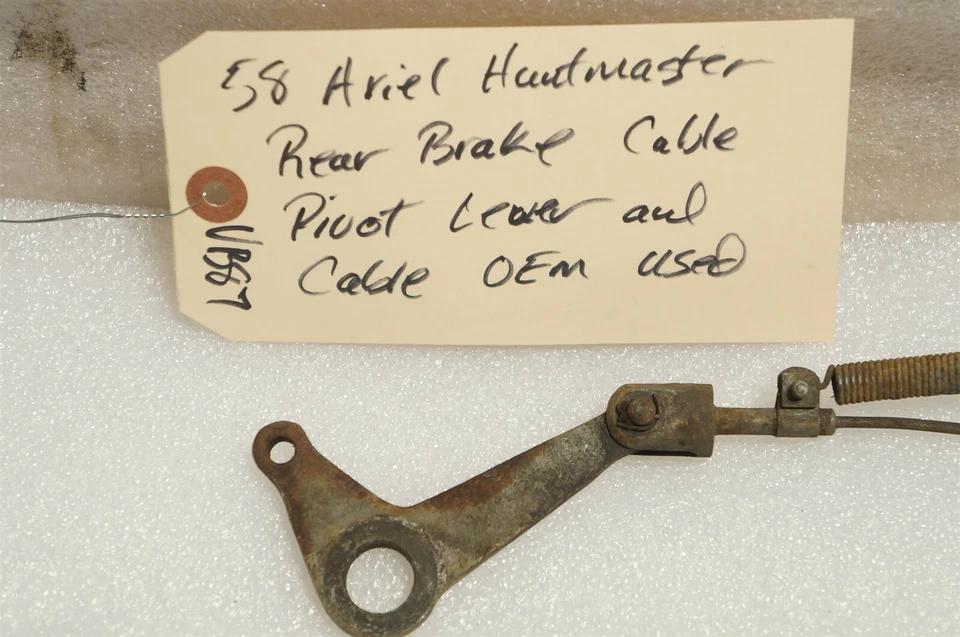 58 Ariel Huntmaster
Rear Brake Cable
Pivot Lever and
Cable OEM used
VB87